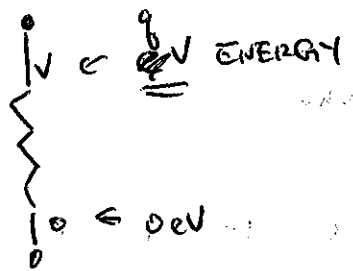 V ← qV ENERGY
0 ← 0eV